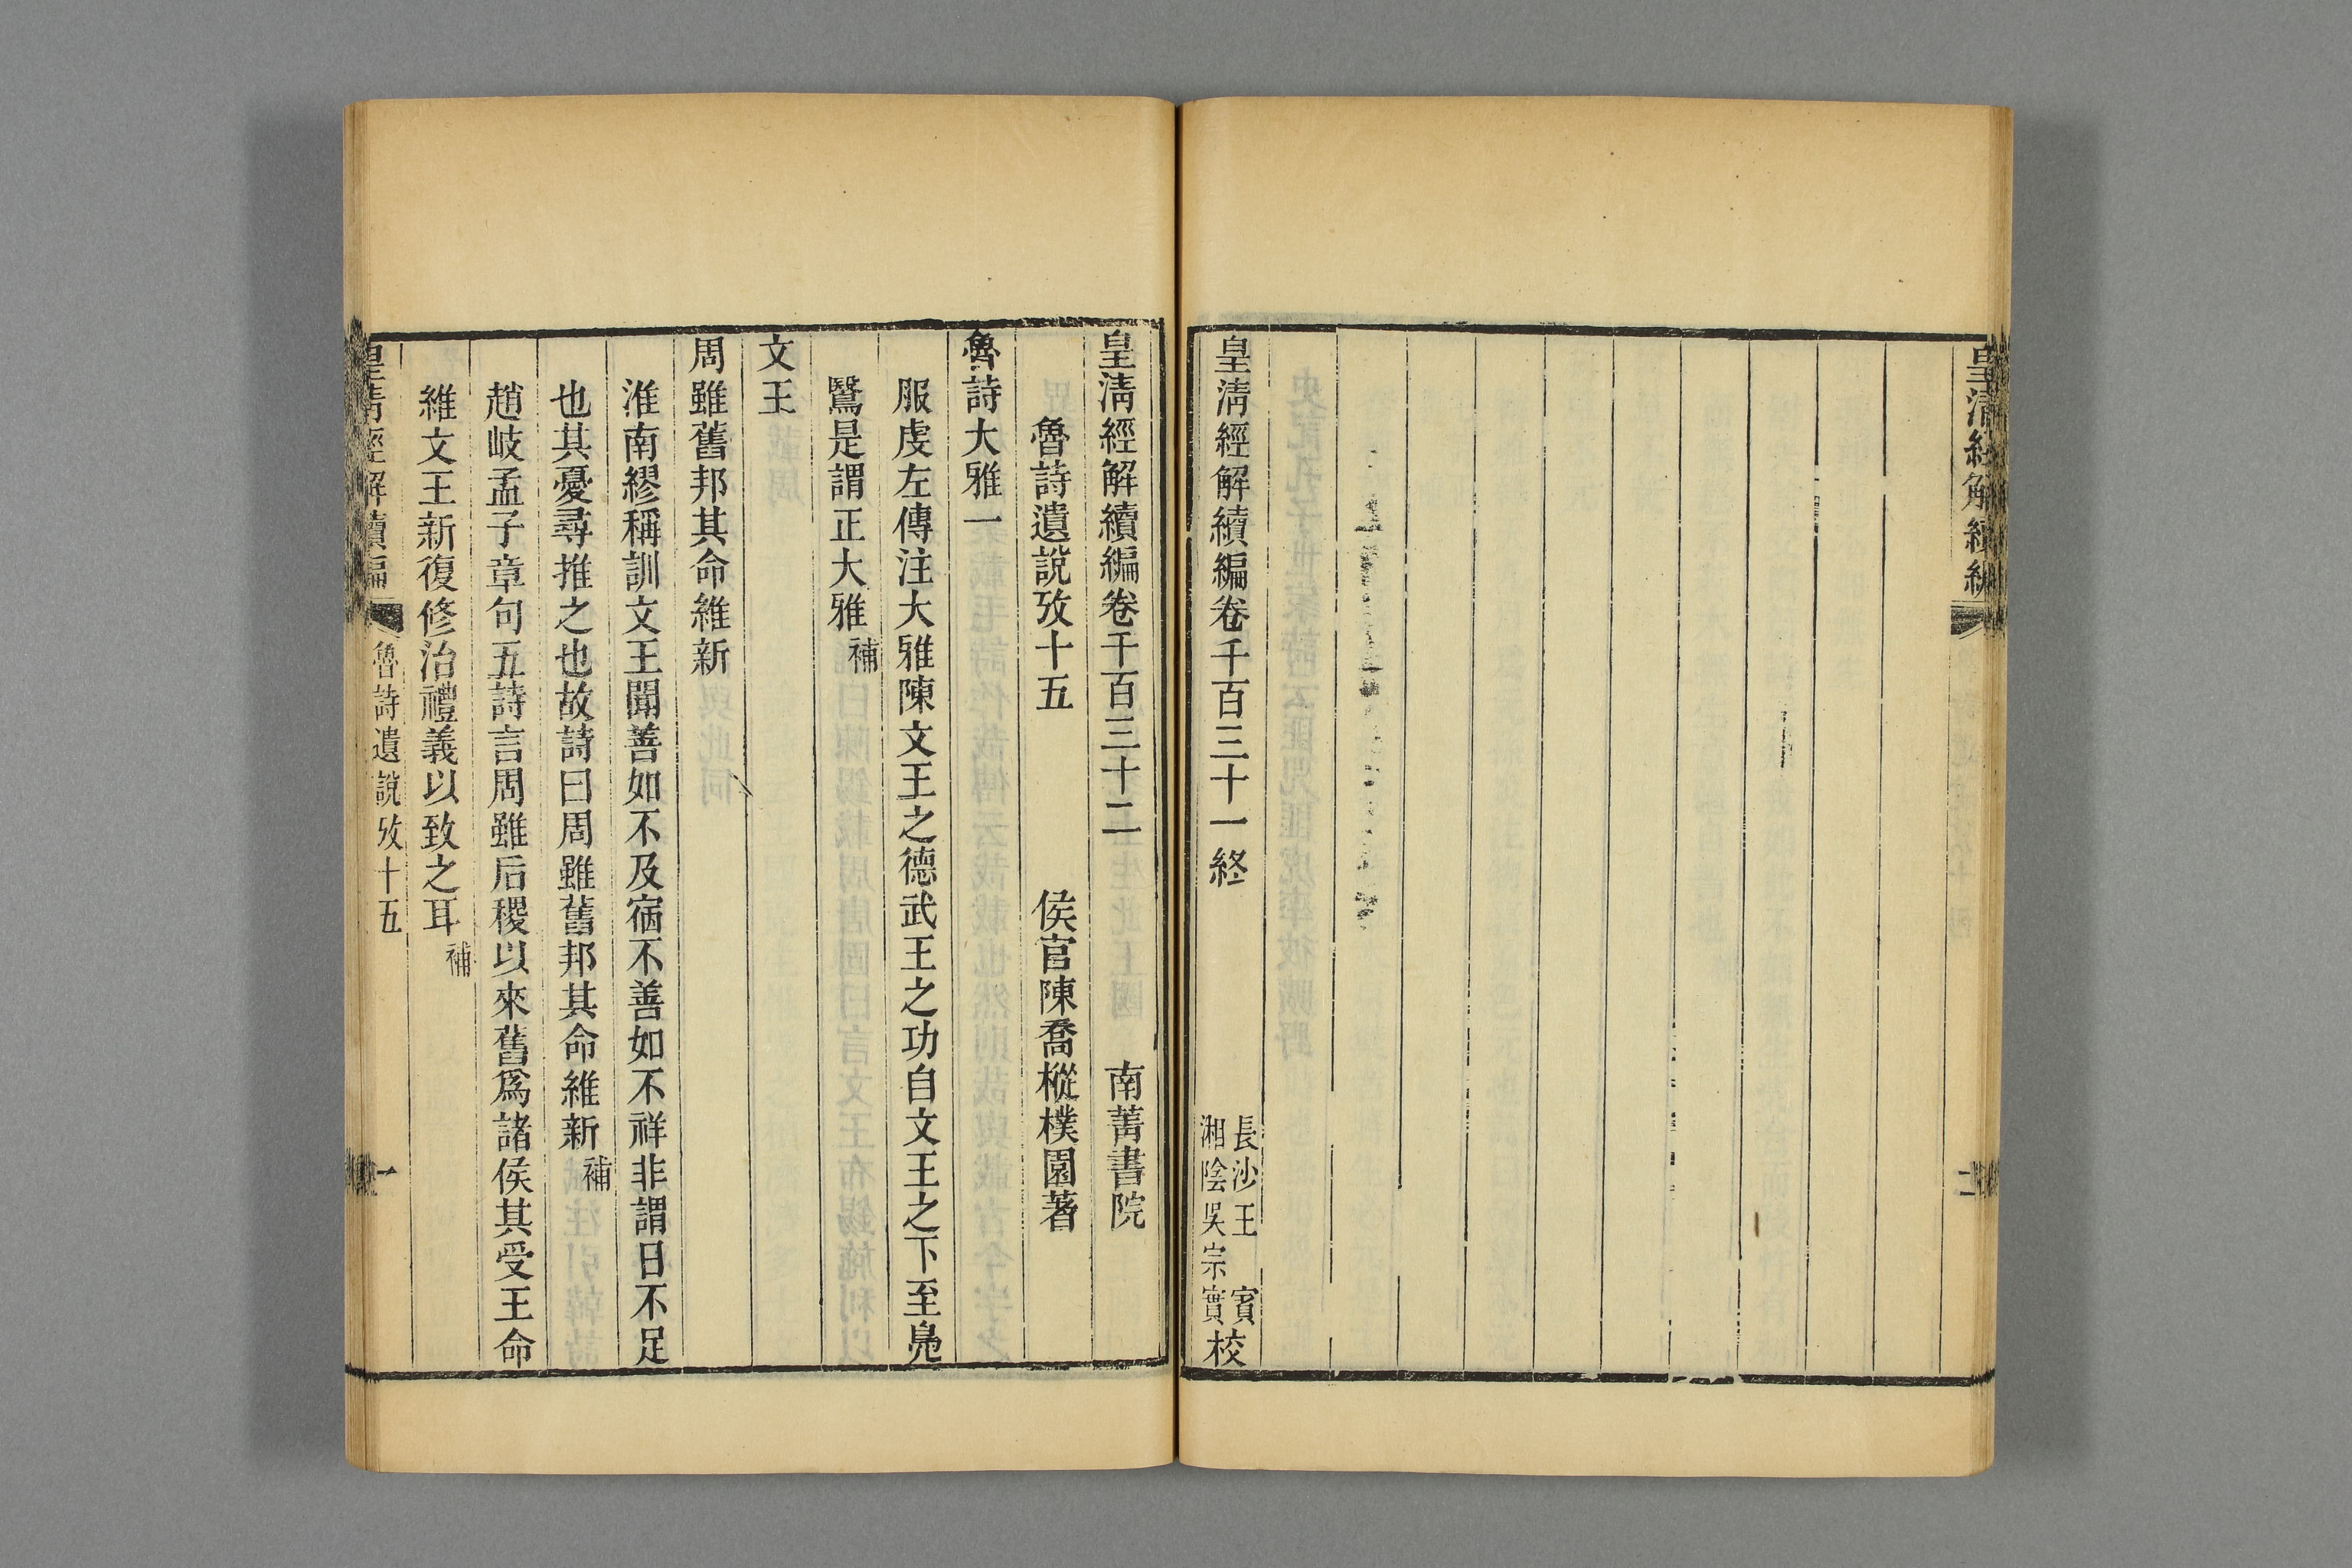 皇清經解續編
皇清經解續編卷千百三十一終
長沙王 賓
湘陰吳宗實
校
皇清經解續編卷千百三十二
南菁書院
魯詩遺說攷十五
侯官陳喬樅樸園著
魯詩大雅一
服虔左傳注大雅陳文王之德武王之功自文王之下至鳧
鷖是謂正大雅補
文王
周雖舊邦其命維新
淮南繆稱訓文王聞善如不及宿不善如不祥非謂日不足
也其憂尋推之也故詩曰周雖舊邦其命維新補
趙岐孟子章句五詩言周雖后稷以來舊爲諸侯其受王命
維文王新復修治禮義以致之耳補
皇清經解續編
魯詩遺說攷十五
一